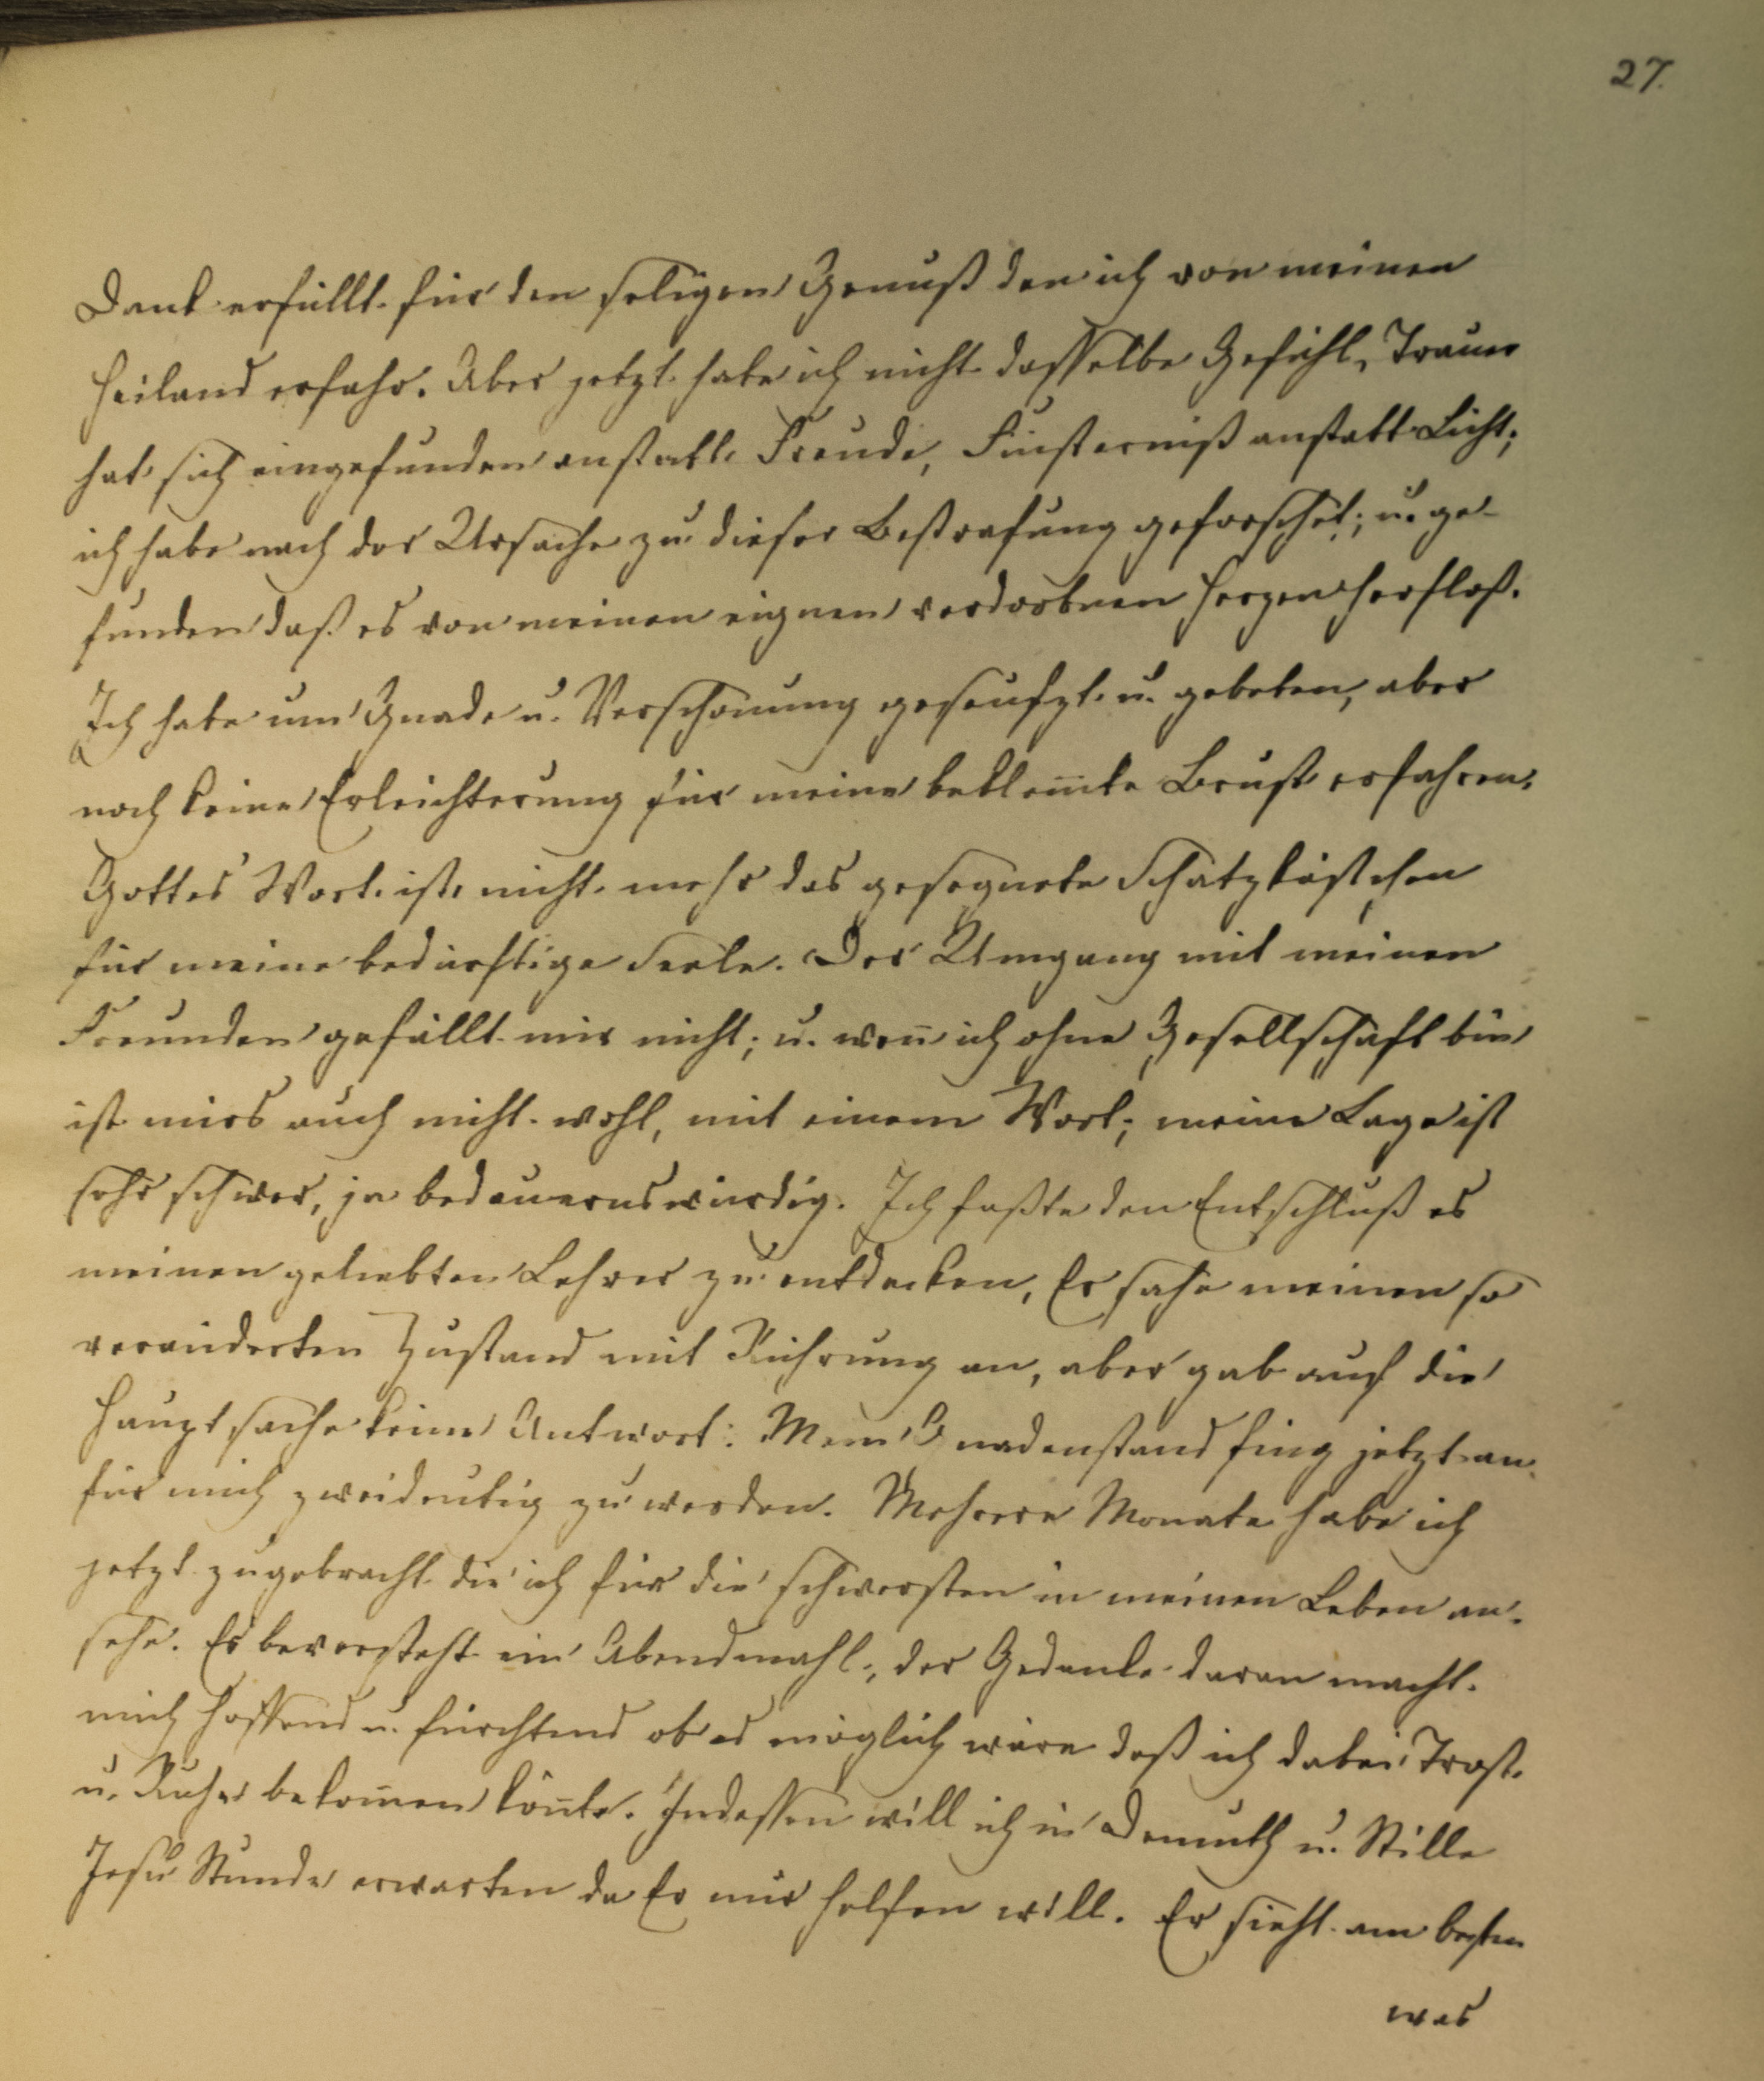 27.
Dank erfüllt für den seligen Genuß den ich von meinen
Heiland erfahr. Aber jetzt habe ich nicht dasselbe Gefühl, Trauer
hat sich eingefunden anstatt Freude, Finsterniß anstatt Licht;
ich habe nach der Ursache zu dieser Bestrafung geforschet; u. ge-
funden daß es von meinen eignen verdorbnen Herzen herfloß.
Ich habe um Gnade u. Verschonung geseufzt u. gebeten, aber
noch keine Erleichterung für meine beklem̅te Brust erfahren.
Gottes Wort ist nicht mehr das gesegnete Schatzkästchen
für meine bedürftige Seele. Der Umgang mit meinen
Freunden gefällt mir nicht; u. wen̅ ich ohne Gesellschaft bin
ist mirs auch nicht wohl, mit einem Wort; meine Lage ist
sehr schwer, ja bedauernswürdig. Ich faßte den Entschluß es
meinen geliebten Lehrer zu entdecken, Er sahe meinen so
veränderten Zustand mit Rührung an, aber gab auf die
Hauptsache keine Antwort: Mein Gnadenstand fing jetzt an
für mich zweideutig zu werden. Mehrere Monate habe ich
jetzt zugebracht die ich für die schwersten in meinen Leben an-
sehe. Es bevorsteht ein Abendmahl, der Gedanke daran macht
mich hoffend u. fürchtend ob es möglich wäre daß ich dabei Trost
u. Ruhe bekom̅en kön̅te. Indessen will ich in Demuth u. Stille
Jesu Stunde erwarten da Er mir helfen will. Er sieht am besten
was